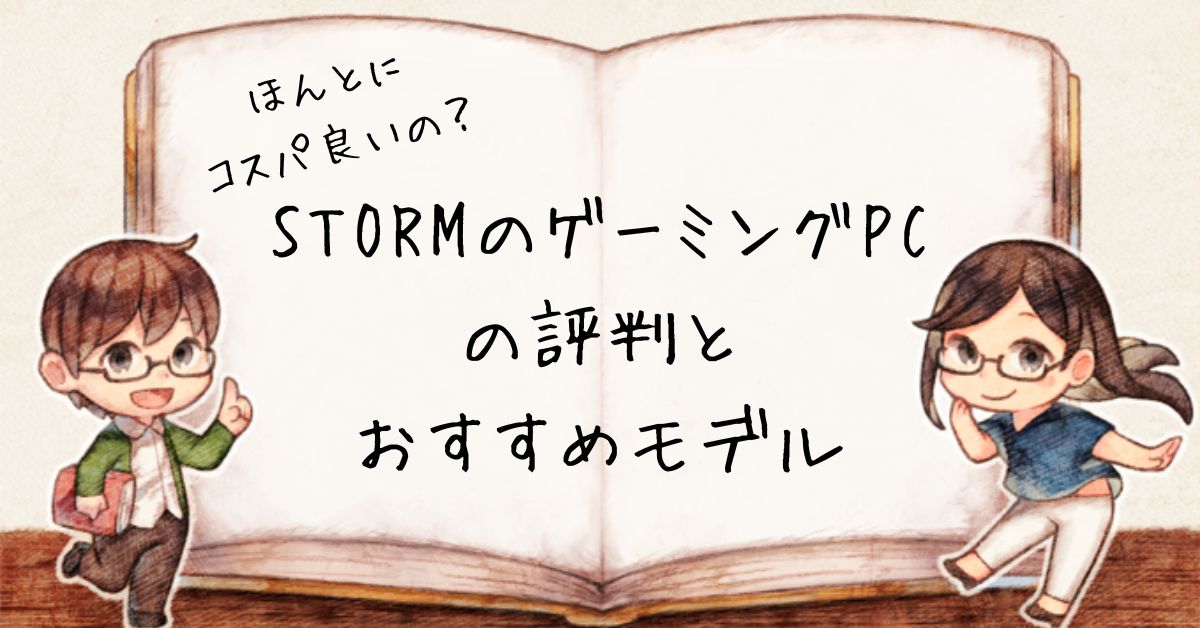 ほんとに
コスパ良いの?
STORMのゲーミングPC
の評判と
おすすめモデル